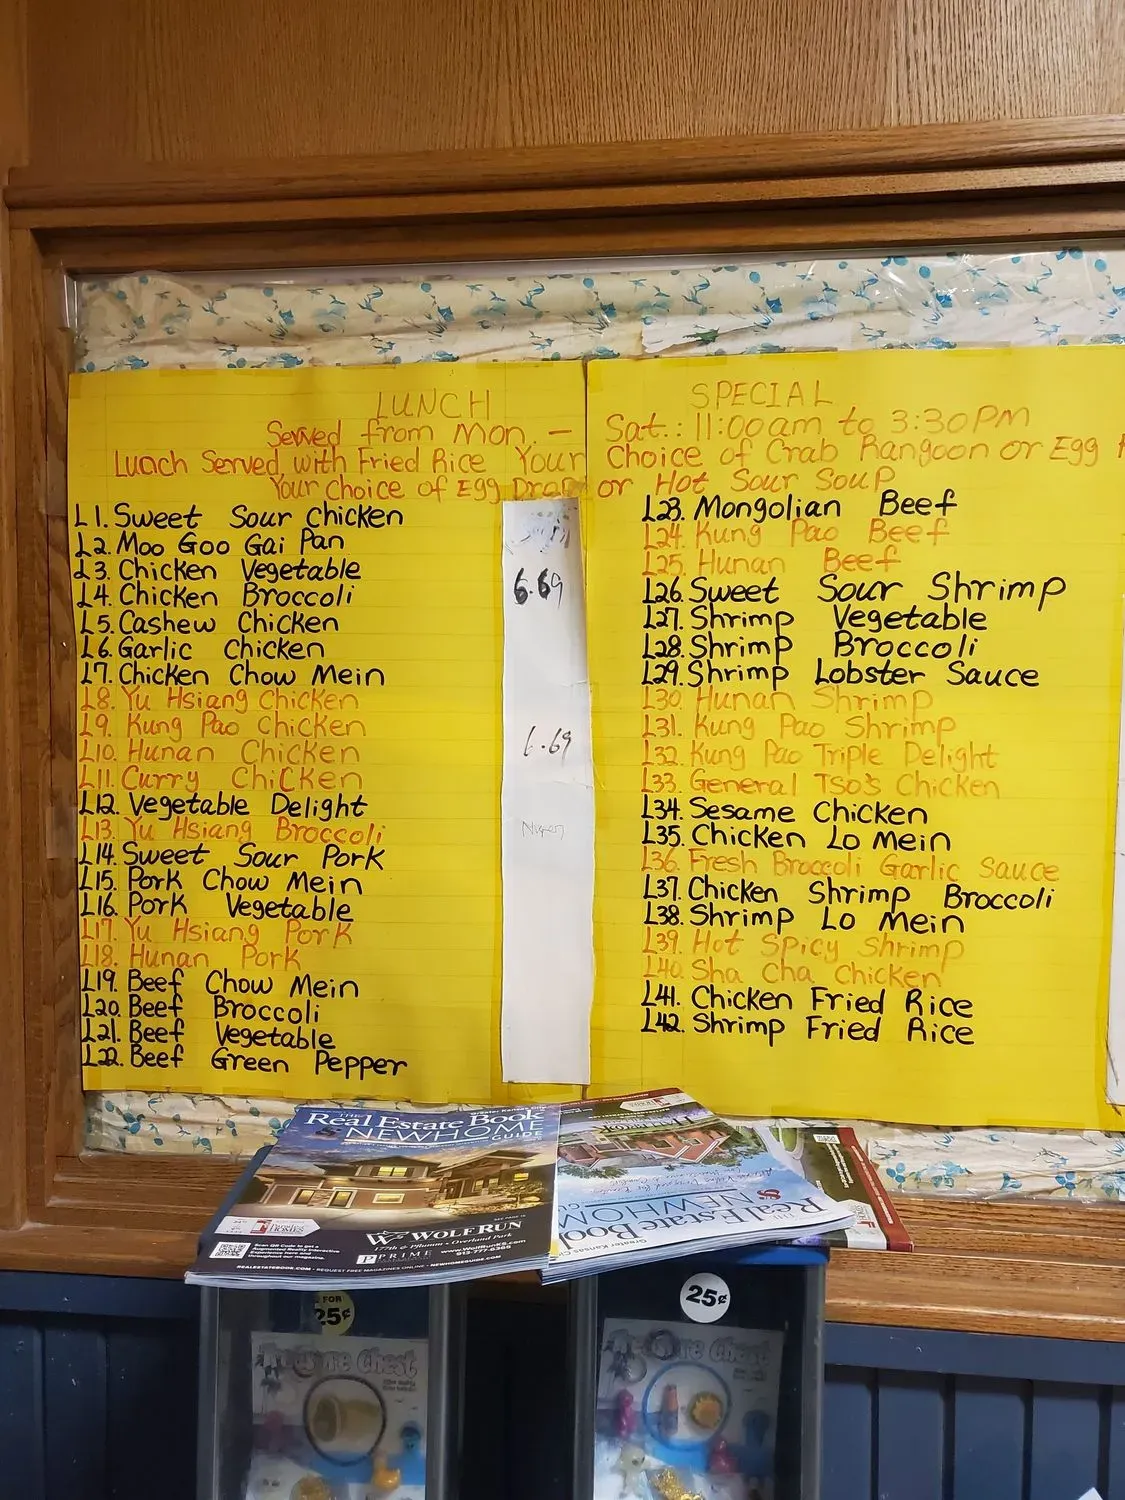 LUNCH SPECIAL
Served from Mon. - Sat.: 11:00am to 3:30PM
Lunch Served with Fried Rice Your Choice of Crab Rangoon or Egg
Your Choice of Egg Drop or Hot Sour Soup
L1. Sweet Sour Chicken
L2. Moo Goo Gai Pan
L3. Chicken Vegetable
L4. Chicken Broccoli
L5. Cashew Chicken
L6. Garlic Chicken
L7. Chicken Chow Mein
L8. Yu Hsiang Chicken
L9. Kung Pao Chicken
L10. Hunan Chicken
L11. Curry Chicken
L12. Vegetable Delight
L13. Yu Hsiang Broccoli
L14. Sweet Sour Pork
L15. Pork Chow Mein
L16. Pork Vegetable
L17. Yu Hsiang Pork
L18. Hunan Pork
L19. Beef Chow Mein
L20. Beef Broccoli
L21. Beef Vegetable
L22. Beef Green Pepper
6.69
6.69
L23. Mongolian Beef
L24. Kung Pao Beef
L25. Hunan Beef
L26. Sweet Sour Shrimp
L27. Shrimp Vegetable
L28. Shrimp Broccoli
L29. Shrimp Lobster Sauce
L30. Hunan Shrimp
L31. Kung Pao Shrimp
L32. Kung Pao Triple Delight
L33. General TSO's Chicken
L34. Sesame Chicken
L35. Chicken Lo Mein
L36. Fresh Broccoli Garlic Sauce
L37. Chicken Shrimp Broccoli
L38. Shrimp Lo Mein
L39. Hot Spicy Shrimp
L40. Sha Cha Chicken
L41. Chicken Fried Rice
L42. Shrimp Fried Rice
Greater Kansas City
THE Real Estate Book
& NEWHOME
GUIDE
WOLF RUN
177th & Pflumm • Overland Park
PRIME
www.WolfRunKS.com
REALESTATEBOOK.COM • REQUEST FREE MAGAZINES ONLINE • NEWHOMEGUIDE.COM
Real Estate Book
& NEWHOM
FOR
25¢
25¢
Treasure Chest
Treasure Chest